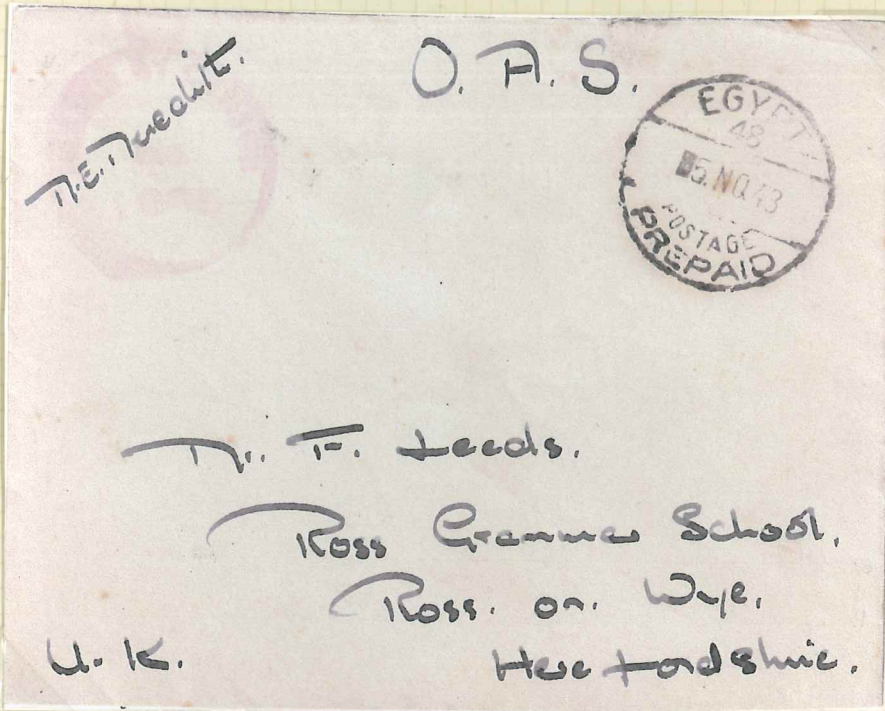 O. A. S.
EGYPT
48
5. NO. 43
POSTAGE
PREPAID
F. Leeds.
Ross Grammar School,
Ross. on. Wye,
U. K. Herefordshire.